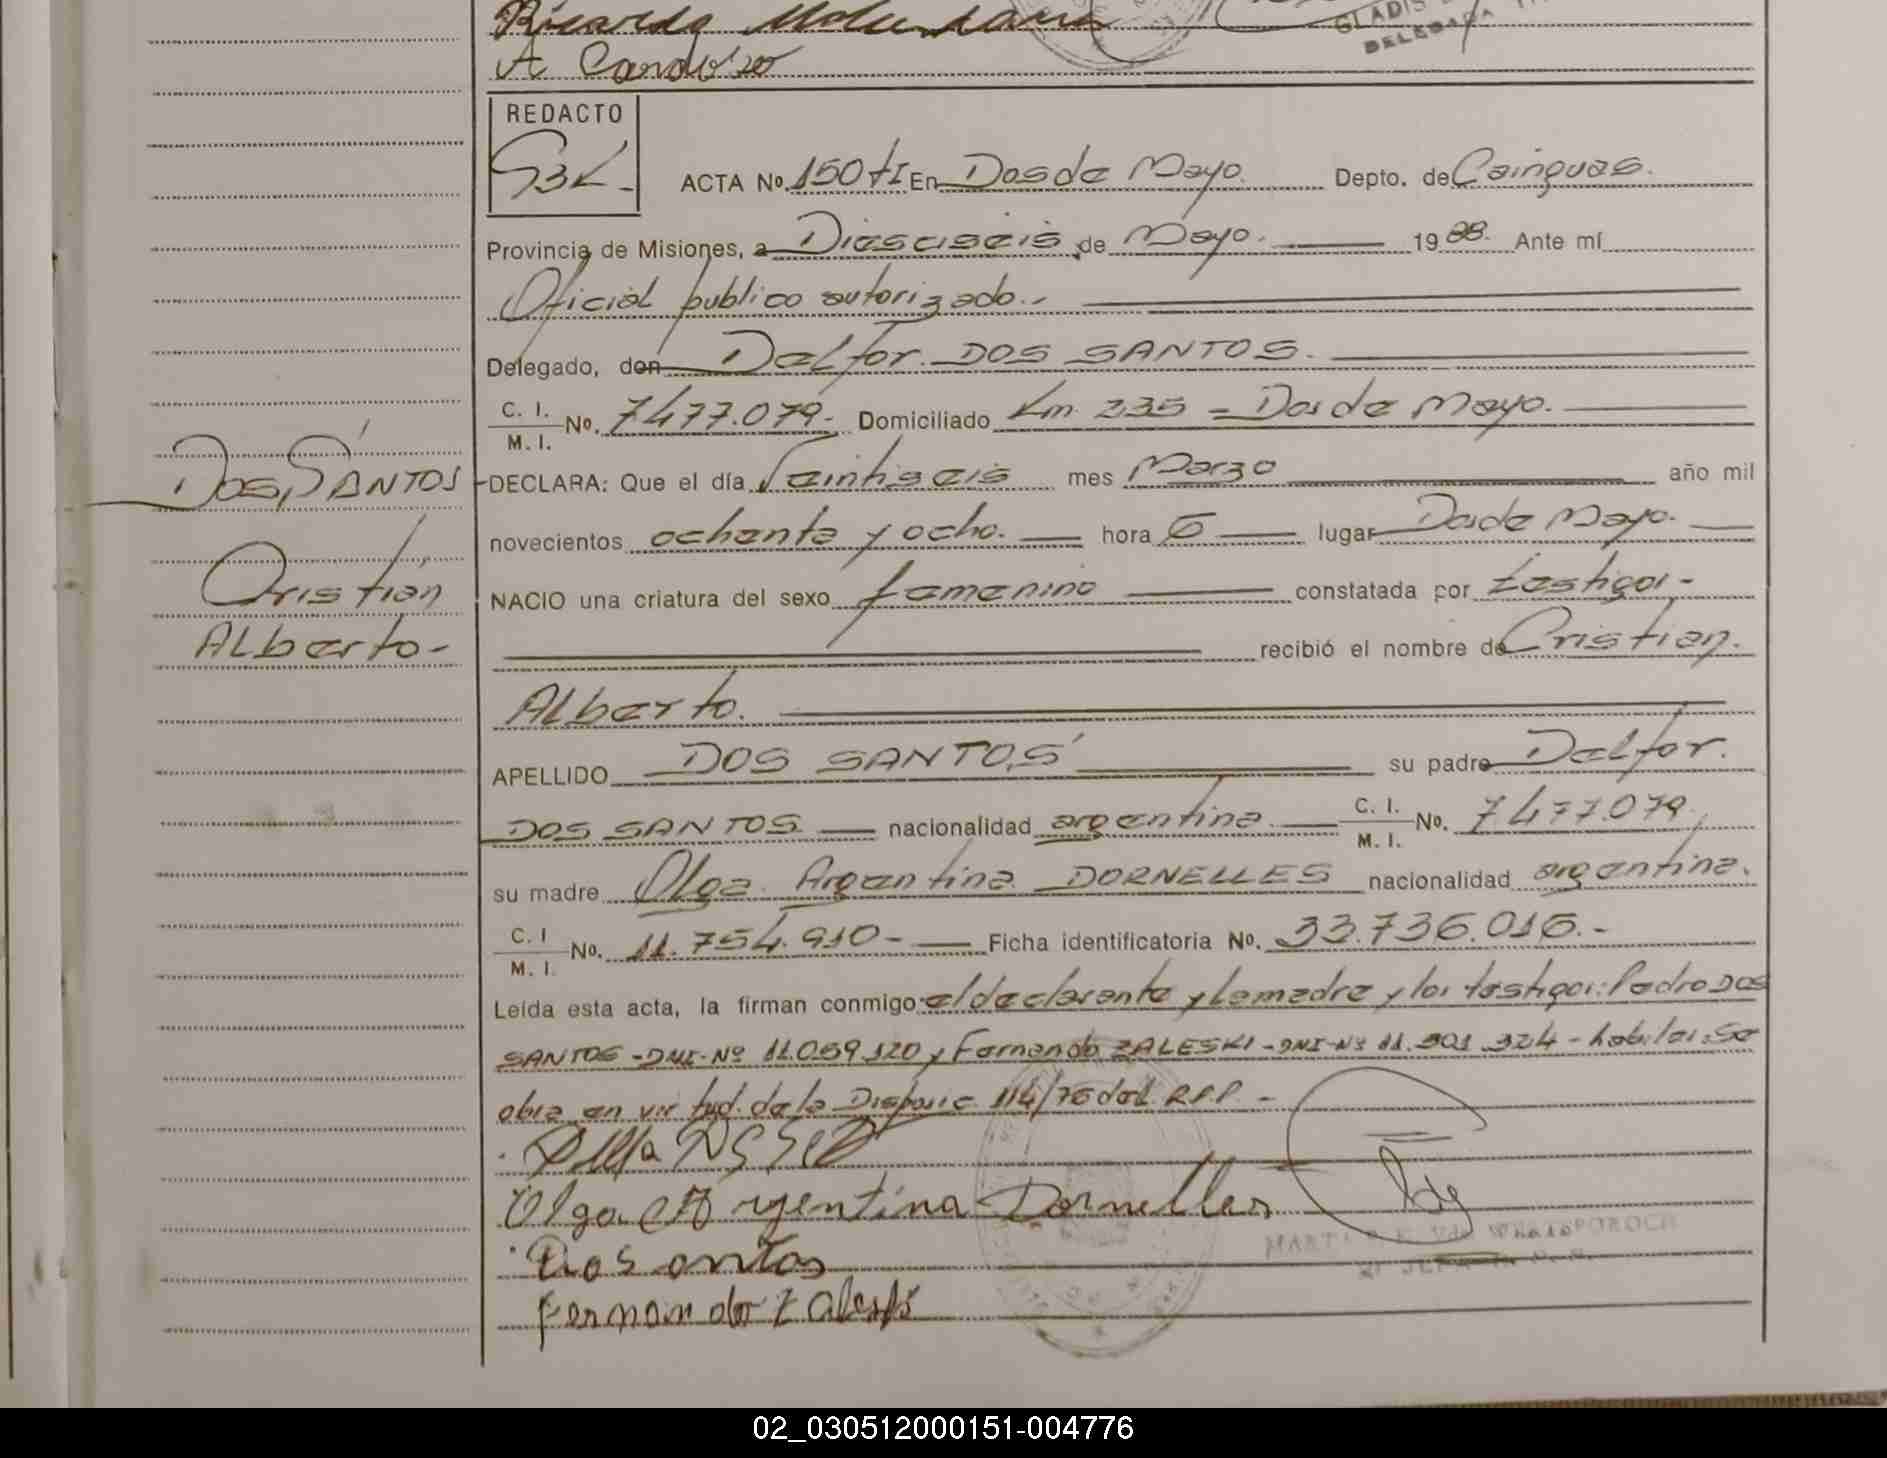 Ricardo
A Cardozo
GLADIS
DELEGADA
REDACTO
ACTA No. 150 tI En Dos de Mayo. Depto. de Cainguas.
Provincia de Misiones, a Dieciseis de Mayo. 1988. Ante mí
Oficial publico autorizado.-
Delegado, don Delfor. DOS SANTOS.
C. I.
M. I.
No. 7477.079.- Domiciliado Km. 235 = Dos de Mayo.
DOS SANTOS
DECLARA: Que el día Veintiseis mes Marzo año mil
novecientos ochenta y ocho. hora 6 lugar Dos de Mayo.
Cristian
NACIO una criatura del sexo femenino constatada por testigos-
Alberto-
recibió el nombre de Cristian.
Alberto.
APELLIDO DOS SANTOS su padre Delfor.
DOS SANTOS nacionalidad argentina. C. I.
M. I.
No. 7477.079.
su madre Olga Argentina DORNELLES nacionalidad argentina.
C. I
M. I.
No. 11.754.910- Ficha identificatoria No. 33.736.016.-
Leída esta acta, la firman conmigo: el declarante y la madre y los testigos: Pedro DOS
SANTOS -DNI-Nº 11.059.120 y Fernando ZALESKI-DNI-Nº 11.301.324 - habiles. Se
obra en virtud de la Disposic 114/76 del R.P.P. -
Olga Argentina Dornelles
Dos ontos
Fernando Zaleski
02_030512000151-004776